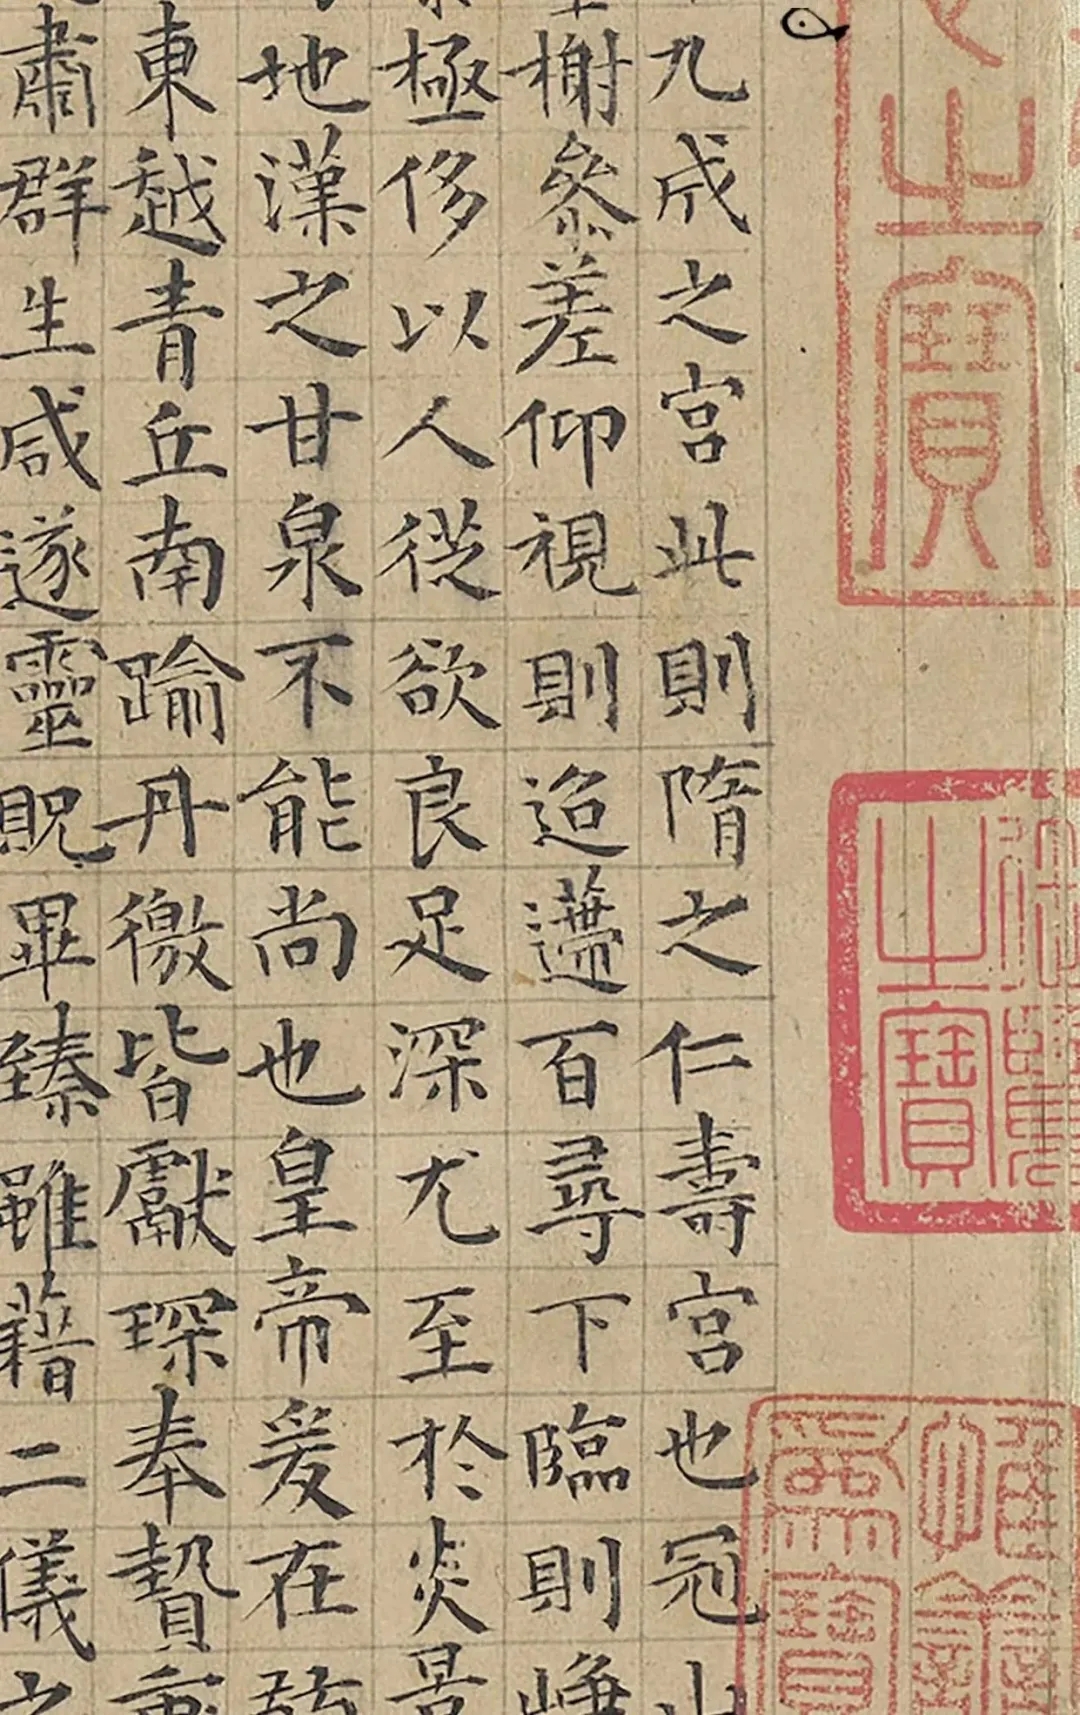 九成之宮此則隋之仁壽宮也冠山
榭參差仰視則迢遰百尋下臨則崢
極侈以人從欲良足深尤至於炎景
地漢之甘泉不能尚也皇帝爰在弱
東越青丘南踰丹徼皆獻琛奉贄重
肅群生咸遂靈貺畢臻雖藉二儀之
之寶
之寶